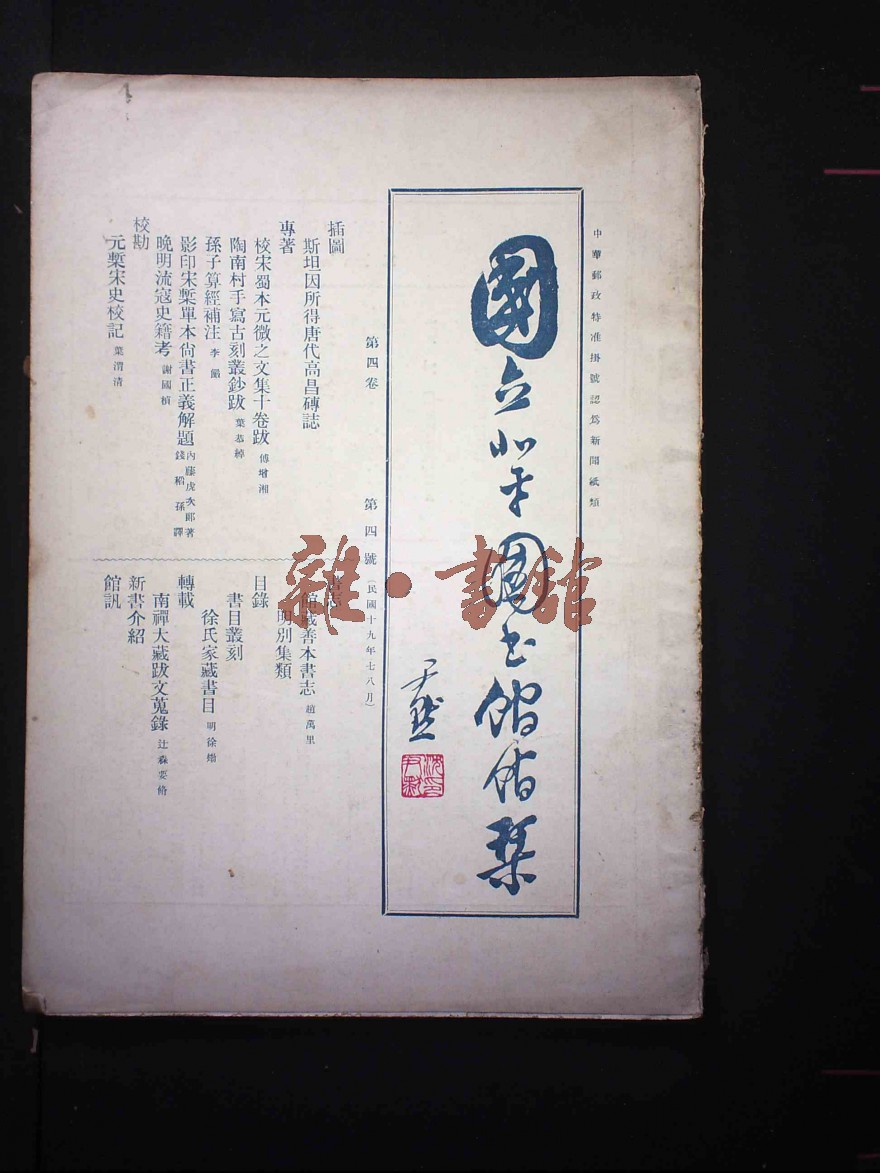 中華郵政特准掛號認爲新聞紙類
國立北平圖書館館刊
尹默
第四卷 第四號 (民國十九年七八月)
插圖
斯坦因所得唐代高昌磚誌
專著
校宋蜀本元微之文集十卷跋 傅增湘
陶南村手寫古刻叢鈔跋 葉恭綽
孫子算經補注 李儼
影印宋槧單本尙書正義解題 內藤虎次郎著 錢稻孫譯
晚明流寇史籍考 謝國楨
校勘
元槧宋史校記 葉渭清
書志
館藏善本書志 趙萬里
明別集類
目錄
書目叢刻
徐氏家藏書目 明徐𤊹
轉載
南禪大藏跋文蒐錄 辻森要脩
新書介紹
館訊
雜·書館